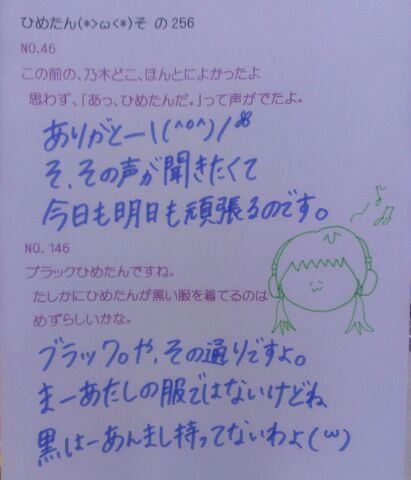 ひめたん(*>ω<*)そ の256
NO.46
この前の、乃木どこ、ほんとによかったよ
思わず、「あっ、ひめたんだ。」って声がでたよ。
ありがとー\(^o^)/
そ、その声が聞きたくて
今日も明日も頑張るのです。
NO. 146
ブラックひめたんですね。
たしかにひめたんが黒い服を着てるのは
めずらしいかな。
ブラック。や、その通りですよ。
まーあたしの服ではないけどね
黒はーあんまし持ってないわよ(ω)